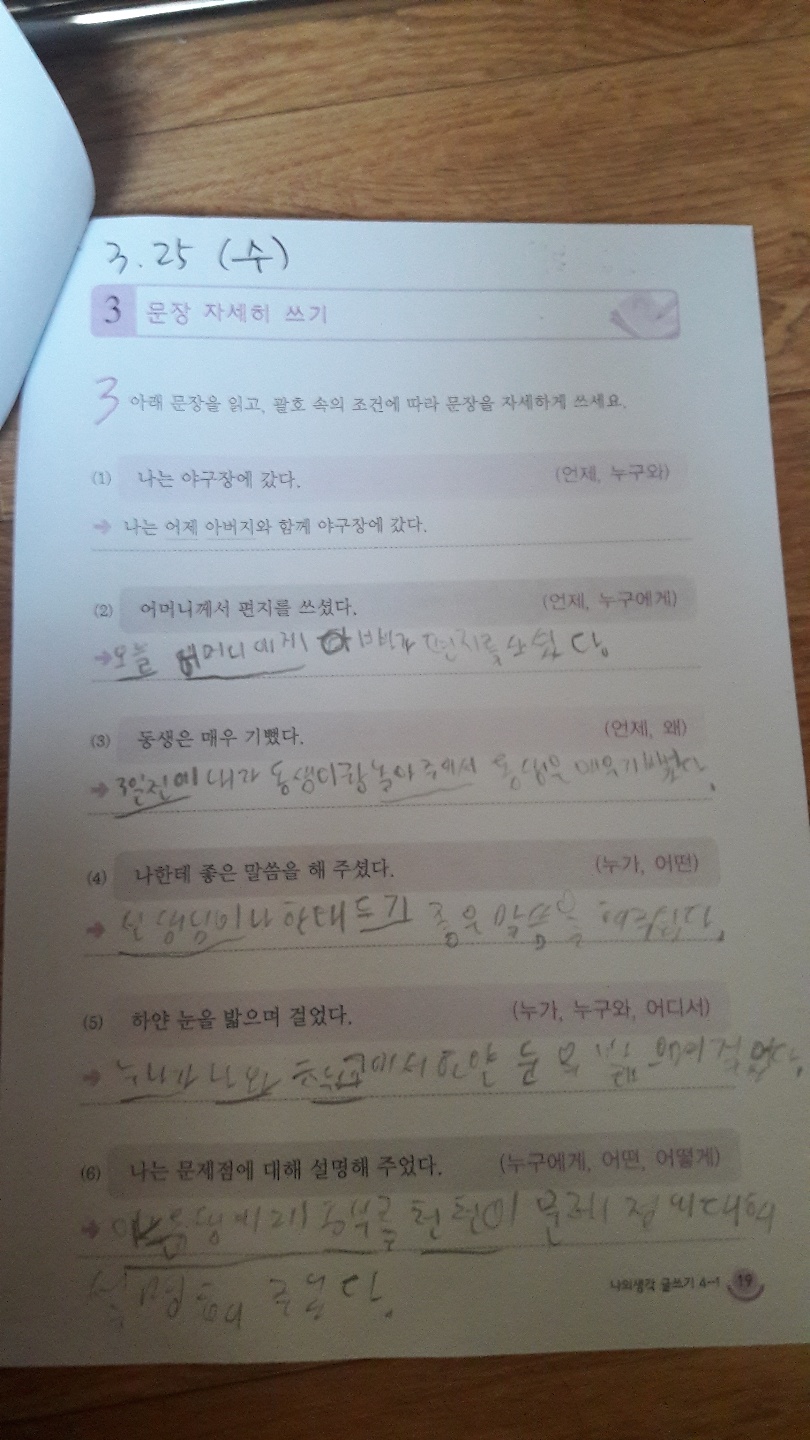 3.25 (수)
3 문장 자세히 쓰기
3 아래 문장을 읽고, 괄호 속의 조건에 따라 문장을 자세하게 쓰세요.
(1) 나는 야구장에 갔다. (언제, 누구와)
→ 나는 어제 아버지와 함께 야구장에 갔다.
(2) 어머니께서 편지를 쓰셨다. (언제, 누구에게)
→ 오늘 어머니에게 아빠가 편지를 쓰셨다.
(3) 동생은 매우 기뻤다. (언제, 왜)
→ 3일전에 내가 동생이랑 놀아주어서 동생은 매우 기뻤다.
(4) 나한테 좋은 말씀을 해 주셨다. (누가, 어떤)
→ 선생님이 나한태 좋은 말씀을
(5) 하얀 눈을 밟으며 걸었다. (누가, 누구와, 어디서)
→ 누나가 나와 에서 하얀 눈 걸었다.
(6) 나는 문제점에 대해 설명해 주었다. (누구에게, 어떤, 어떻게)
→ 동생에게 공부를 천천이 문제점에대해
설명해 주었다.
나의생각 글쓰기 4-1 19